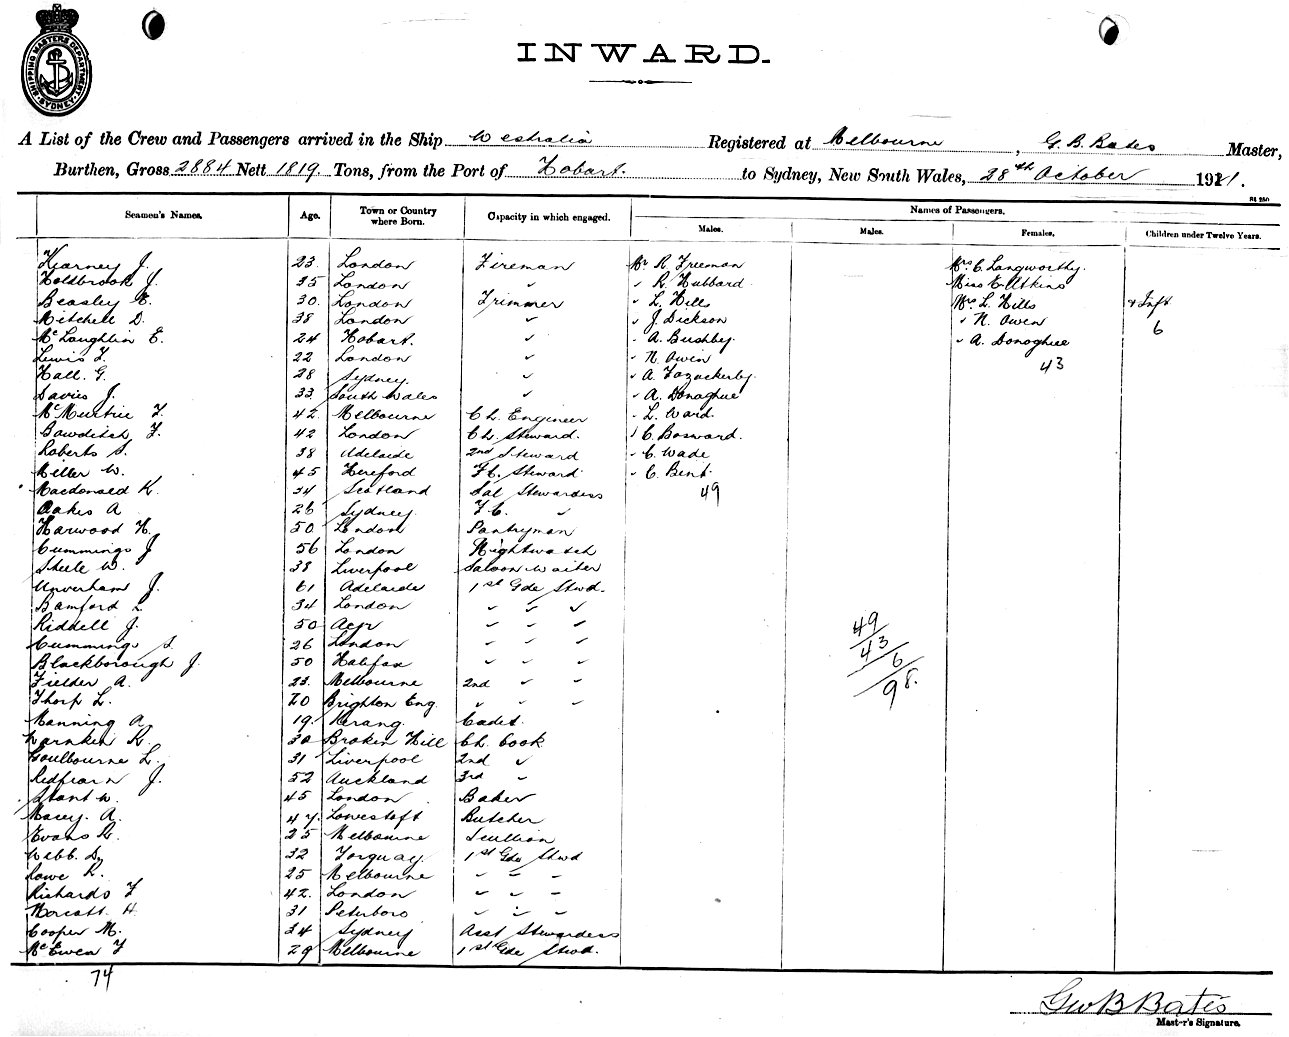 SHIPPING MASTERS DEPARTMENT SYDNEY
INWARD.
A List of the Crew and Passengers arrived in the Ship Westralia Registered at Melbourne, G. B. Bates Master,
Burthen, Gross 2884 Nett 1819 Tons, from the Port of Hobart. to Sydney, New South Wales, 28th October 1911.
Seamen's Names. Age. Town or Country where Born. Capacity in which engaged. Names of Passengers.
Males. Males. Females. Children under Twelve Years.
Kearney J. 23 London Fireman Mr R. Freeman Mrs C. Langworthy.
Holdbrook J. 35 London " " R. Hubbard Miss E. Atkins
Beasley E. 30 London Trimmer " L. Hills Mrs L. Hills & Inft
Mitchell D. 38 London " " J. Dickson " N. Owen 6
McLaughlin E. 24 Hobart. " " A. Bushby. " A. Donoghue
Lewis F. 22 London " " N. Owen 43
Hall. G. 28 Sydney. " " A. Fazackerley.
Davies J. 33 South Wales " " A. Donoghue
McMurtrie F. 42 Melbourne Ch. Engineer " L. Ward.
Bowditch F. 42 London Ch. Steward. " C. Bosward.
Roberts S. 38 Adelaide 2nd Steward " C. Wade
Miller W. 45 Hereford F.C. Steward " C. Bent
Macdonald K. 34 Scotland Sal Stewardess 49
Oakes A 26 Sydney. F.C. "
Harwood H. 50 London Pantryman
Cummings J 56 London Nightwatch
Steele W. 38 Liverpool Saloon Waiter
Unverham J. 61 Adelaide 1st Gde Stwd.
Bamford L 34 London " " "
Riddell J. 50 Ayr " " "
Cummings S. 26 London " " "
Blackborough J. 50 Halifax " " "
Fielder A. 23 Melbourne 2nd " "
Thorp L. 20 Brighton Eng. " " "
Manning A. 19 Kerang. Cadet.
Warnken R. 30 Broken Hill Ch. Cook
Goulbourne L. 31 Liverpool 2nd "
Redfearn J. 52 Auckland 3rd "
Stant W. 45 London Baker
Macey. A. 47 Lowestoft Butcher
Evans R. 25 Melbourne Scullion
Webb. D. 32 Torquay. 1st Gde Stwd
Rowe R. 25 Melbourne " " "
Richards F 42 London " " "
Morcatt. H. 31 Peterboro " " "
Cooper M. 34 Sydney Asst Stewardess
McEwen F 29 Melbourne 1st Gde Stwd.
49
43
6
98.
74
Geo B Bates
Master's Signature.